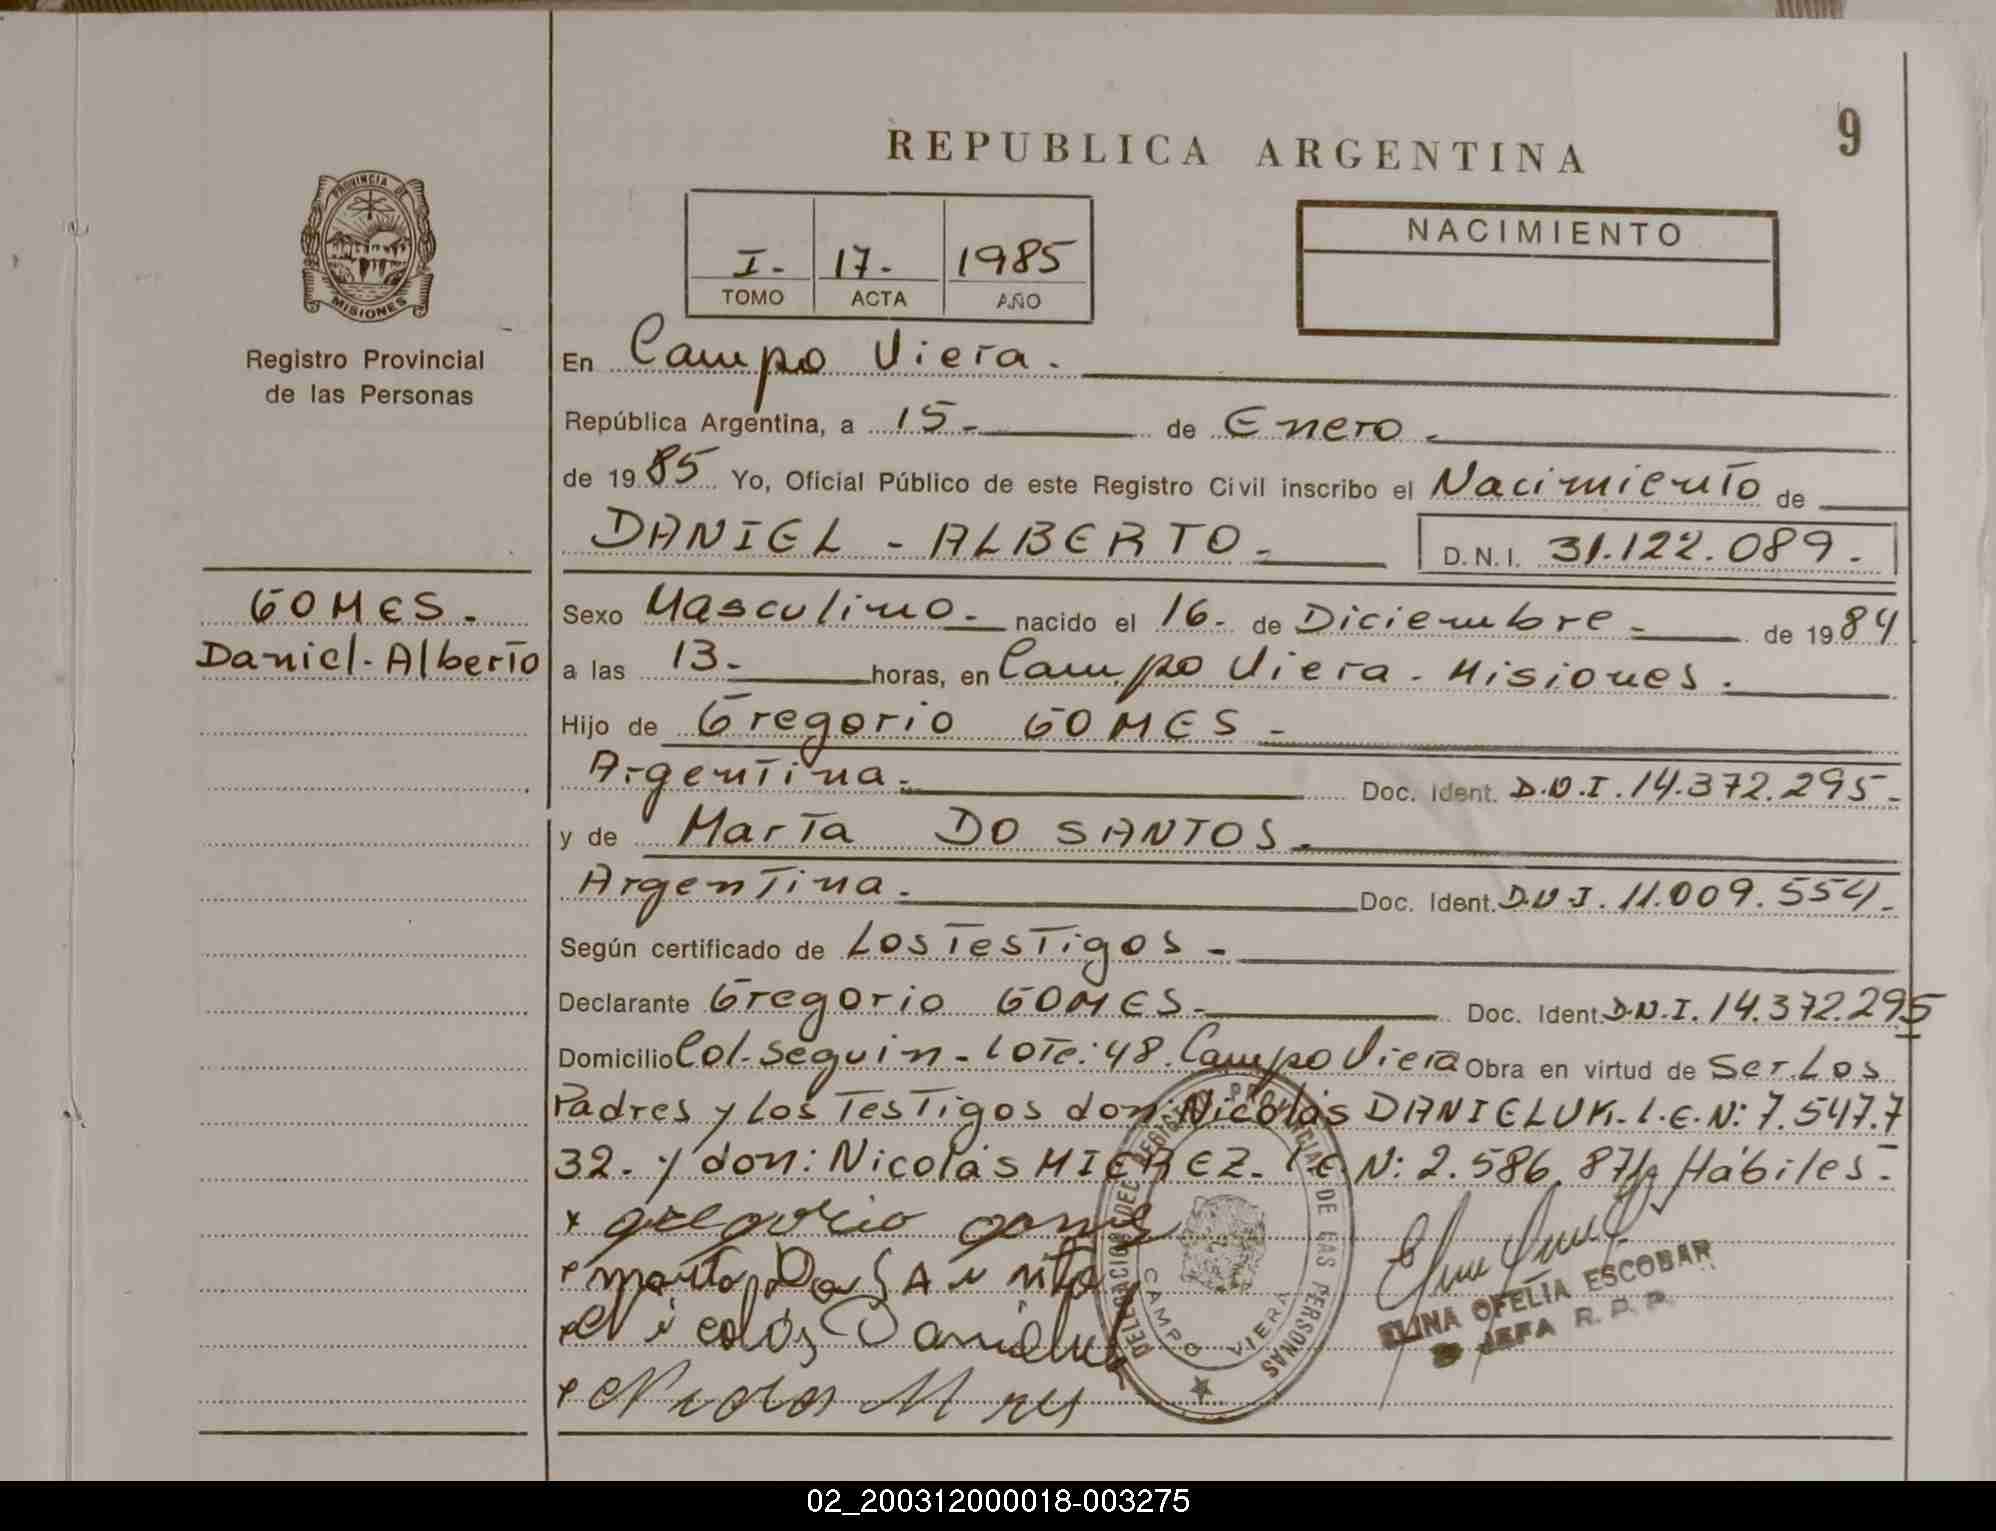 REPUBLICA ARGENTINA
9
PROVINCIA DE
MISIONES
Registro Provincial
de las Personas
I. 17. 1985
TOMO ACTA AÑO
NACIMIENTO
En Campo Viera.
República Argentina, a 15- de Enero.
de 1985 Yo, Oficial Público de este Registro Civil inscribo el Nacimiento de
DANIEL - ALBERTO.- D.N.I. 31.122.089.
GOMES.
Daniel-Alberto
Sexo Masculino- nacido el 16- de Diciembre- de 1984
a las 13- horas, en Campo Viera. Misiones.
Hijo de Gregorio GOMES-
Argentina. Doc. Ident. D.N.I. 14.372.295-
y de Marta DO SANTOS.
Argentina. Doc. Ident. D.N.I. 11.009.554.
Según certificado de Los Testigos-
Declarante Gregorio GOMES. Doc. Ident. D.N.I. 14.372.295
Domicilio Col. Seguin- Lote: 48. Campo Viera Obra en virtud de Ser Los
Padres y Los Testigos don: Nicolás DANIELUK. L.E.N: 7.547.7
32. y don: Nicolás MIEREZ. L.E.N: 2.586.871, Hábiles-
gregorio gomes
marta Do SAnto
Nicolás Danieluk
Nicolas
DELEGACION DEL REGISTRO PROVINCIAL DE LAS PERSONAS
CAMPO VIERA
ELINA OFELIA ESCOBAR
JEFA R.P.P.
02_200312000018-003275